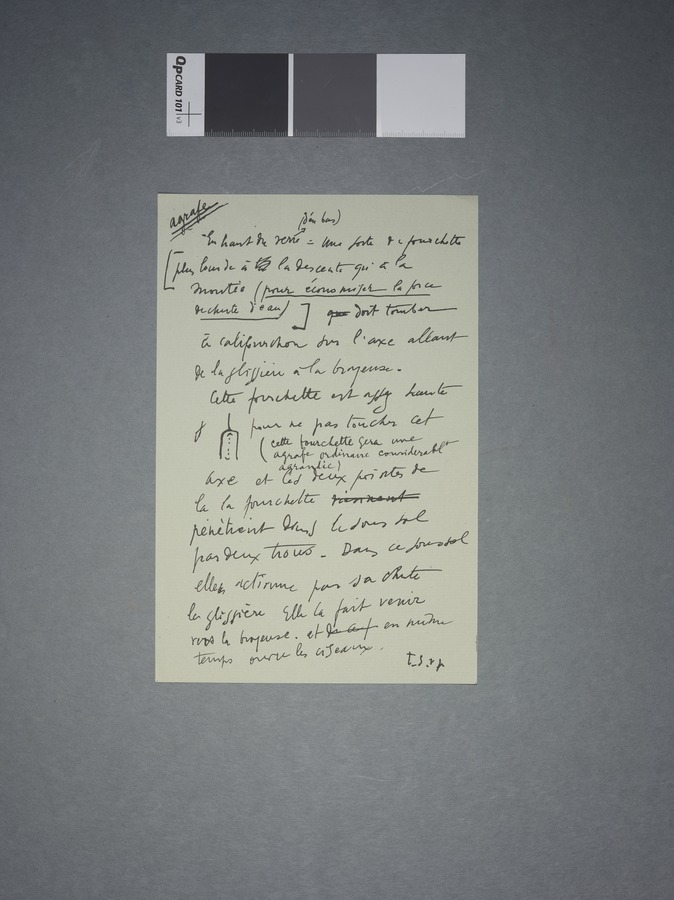 QPCARD 101 v3
agrafe
(d'en bas)
En haut du verre = une sorte de fourchette
[plus lourde à la descente qu'à la
montée (pour économiser la force
de chute d'eau)] que doit tomber
à califourchon sur l'axe allant
de la glissière à la broyeuse.
Cette fourchette est assez haute
pour ne pas toucher cet
(cette fourchette sera une
agrafe ordinaire considerablt
agrandie)
axe et les deux pointes de
la la fourchette viennent
pénètrent dans le sous sol
par deux trous. Dans ce sous sol
elles actionne par sa chute
la glissière Elle la fait venir
vers la broyeuse. et en même
temps ouvre les ciseaux.